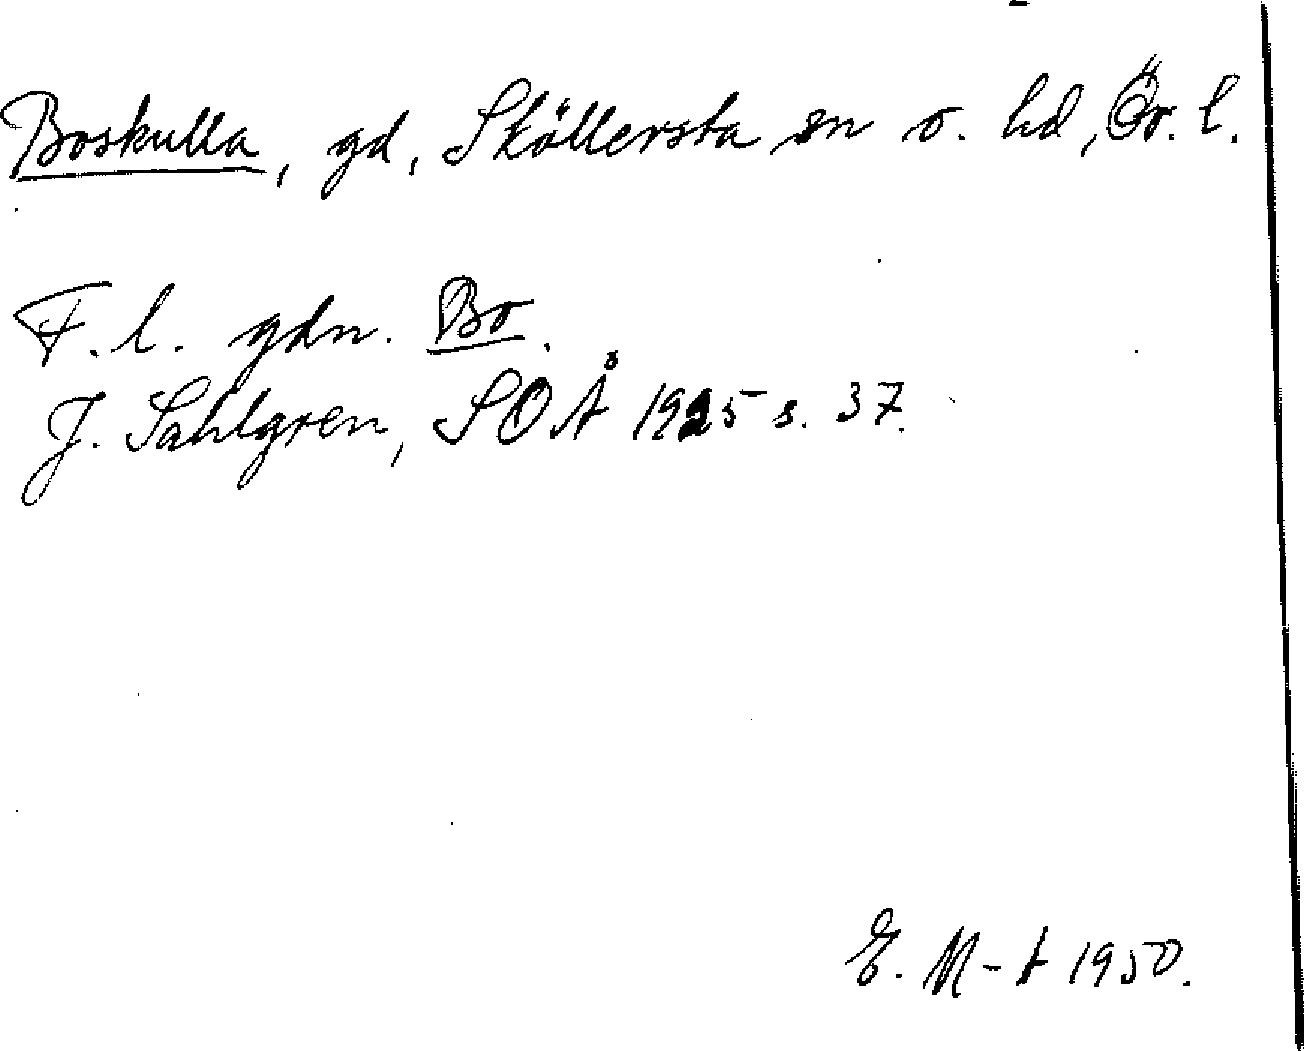 Boskulla, gd, Sköllersta sn o. hd, Ör. l.
F. l. gdn. Bo.
J. Sahlgren, SOÅ 1925 s. 37.
E. M-t 1950.